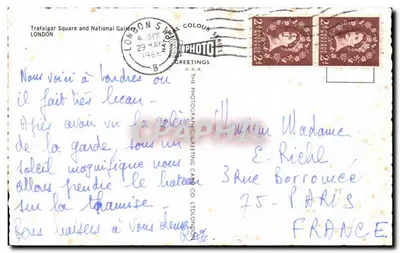 Trafalgar Square and National Gallery
LONDON
LONDON S.W.
29 MAY
196
8
COLOUR SERIES
PHOTO
GREETINGS
U.S.A.
THE PHOTOGRAPHIC GREETING CARD CO. LTD., LONDON
Nous voici à Londres où
il fait très beau.
Après avoir vu la relève
de la garde, sous un
soleil magnifique nous
allons prendre le bateau
sur la Thamise.
Gros baisers à vous deux
Monsieur Madame
E. Riehl
3 Rue Borromée
75 - PARIS
FRANCE